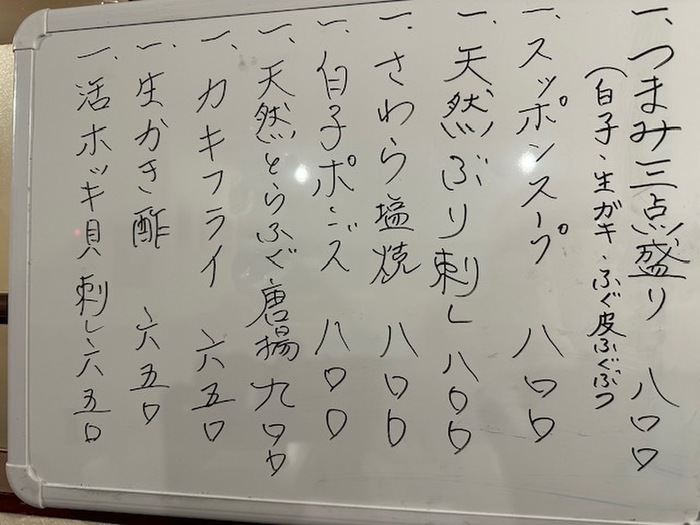 一、つまみ三点盛り 八〇〇
(白子、生ガキ、ふぐ皮ふぐぶつ
一、スッポンスープ 八〇〇
一、天然ぶり刺し 八〇〇
一、さわら塩焼 八〇〇
一、白子ポンズ 八〇〇
一、天然とらふぐ唐揚 九〇〇
一、カキフライ 六五〇
一、生かき酢 六五〇
一、活ホッキ貝刺し 六五〇